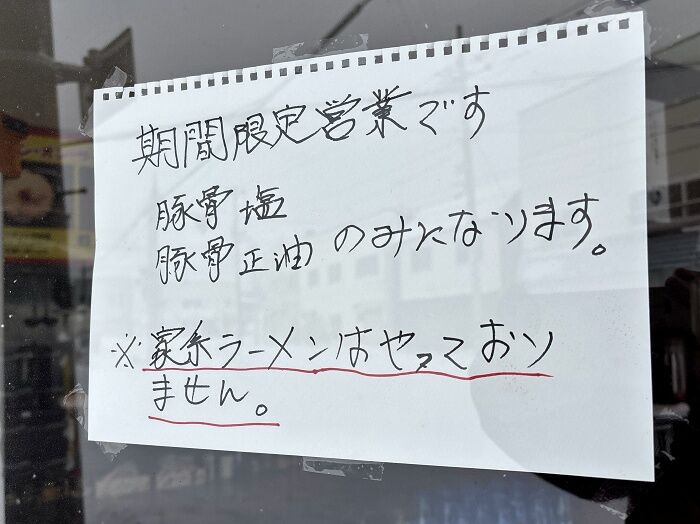 期間限定営業です
豚骨塩
豚骨正油 のみになります。
※家系ラーメンはやっておりません。